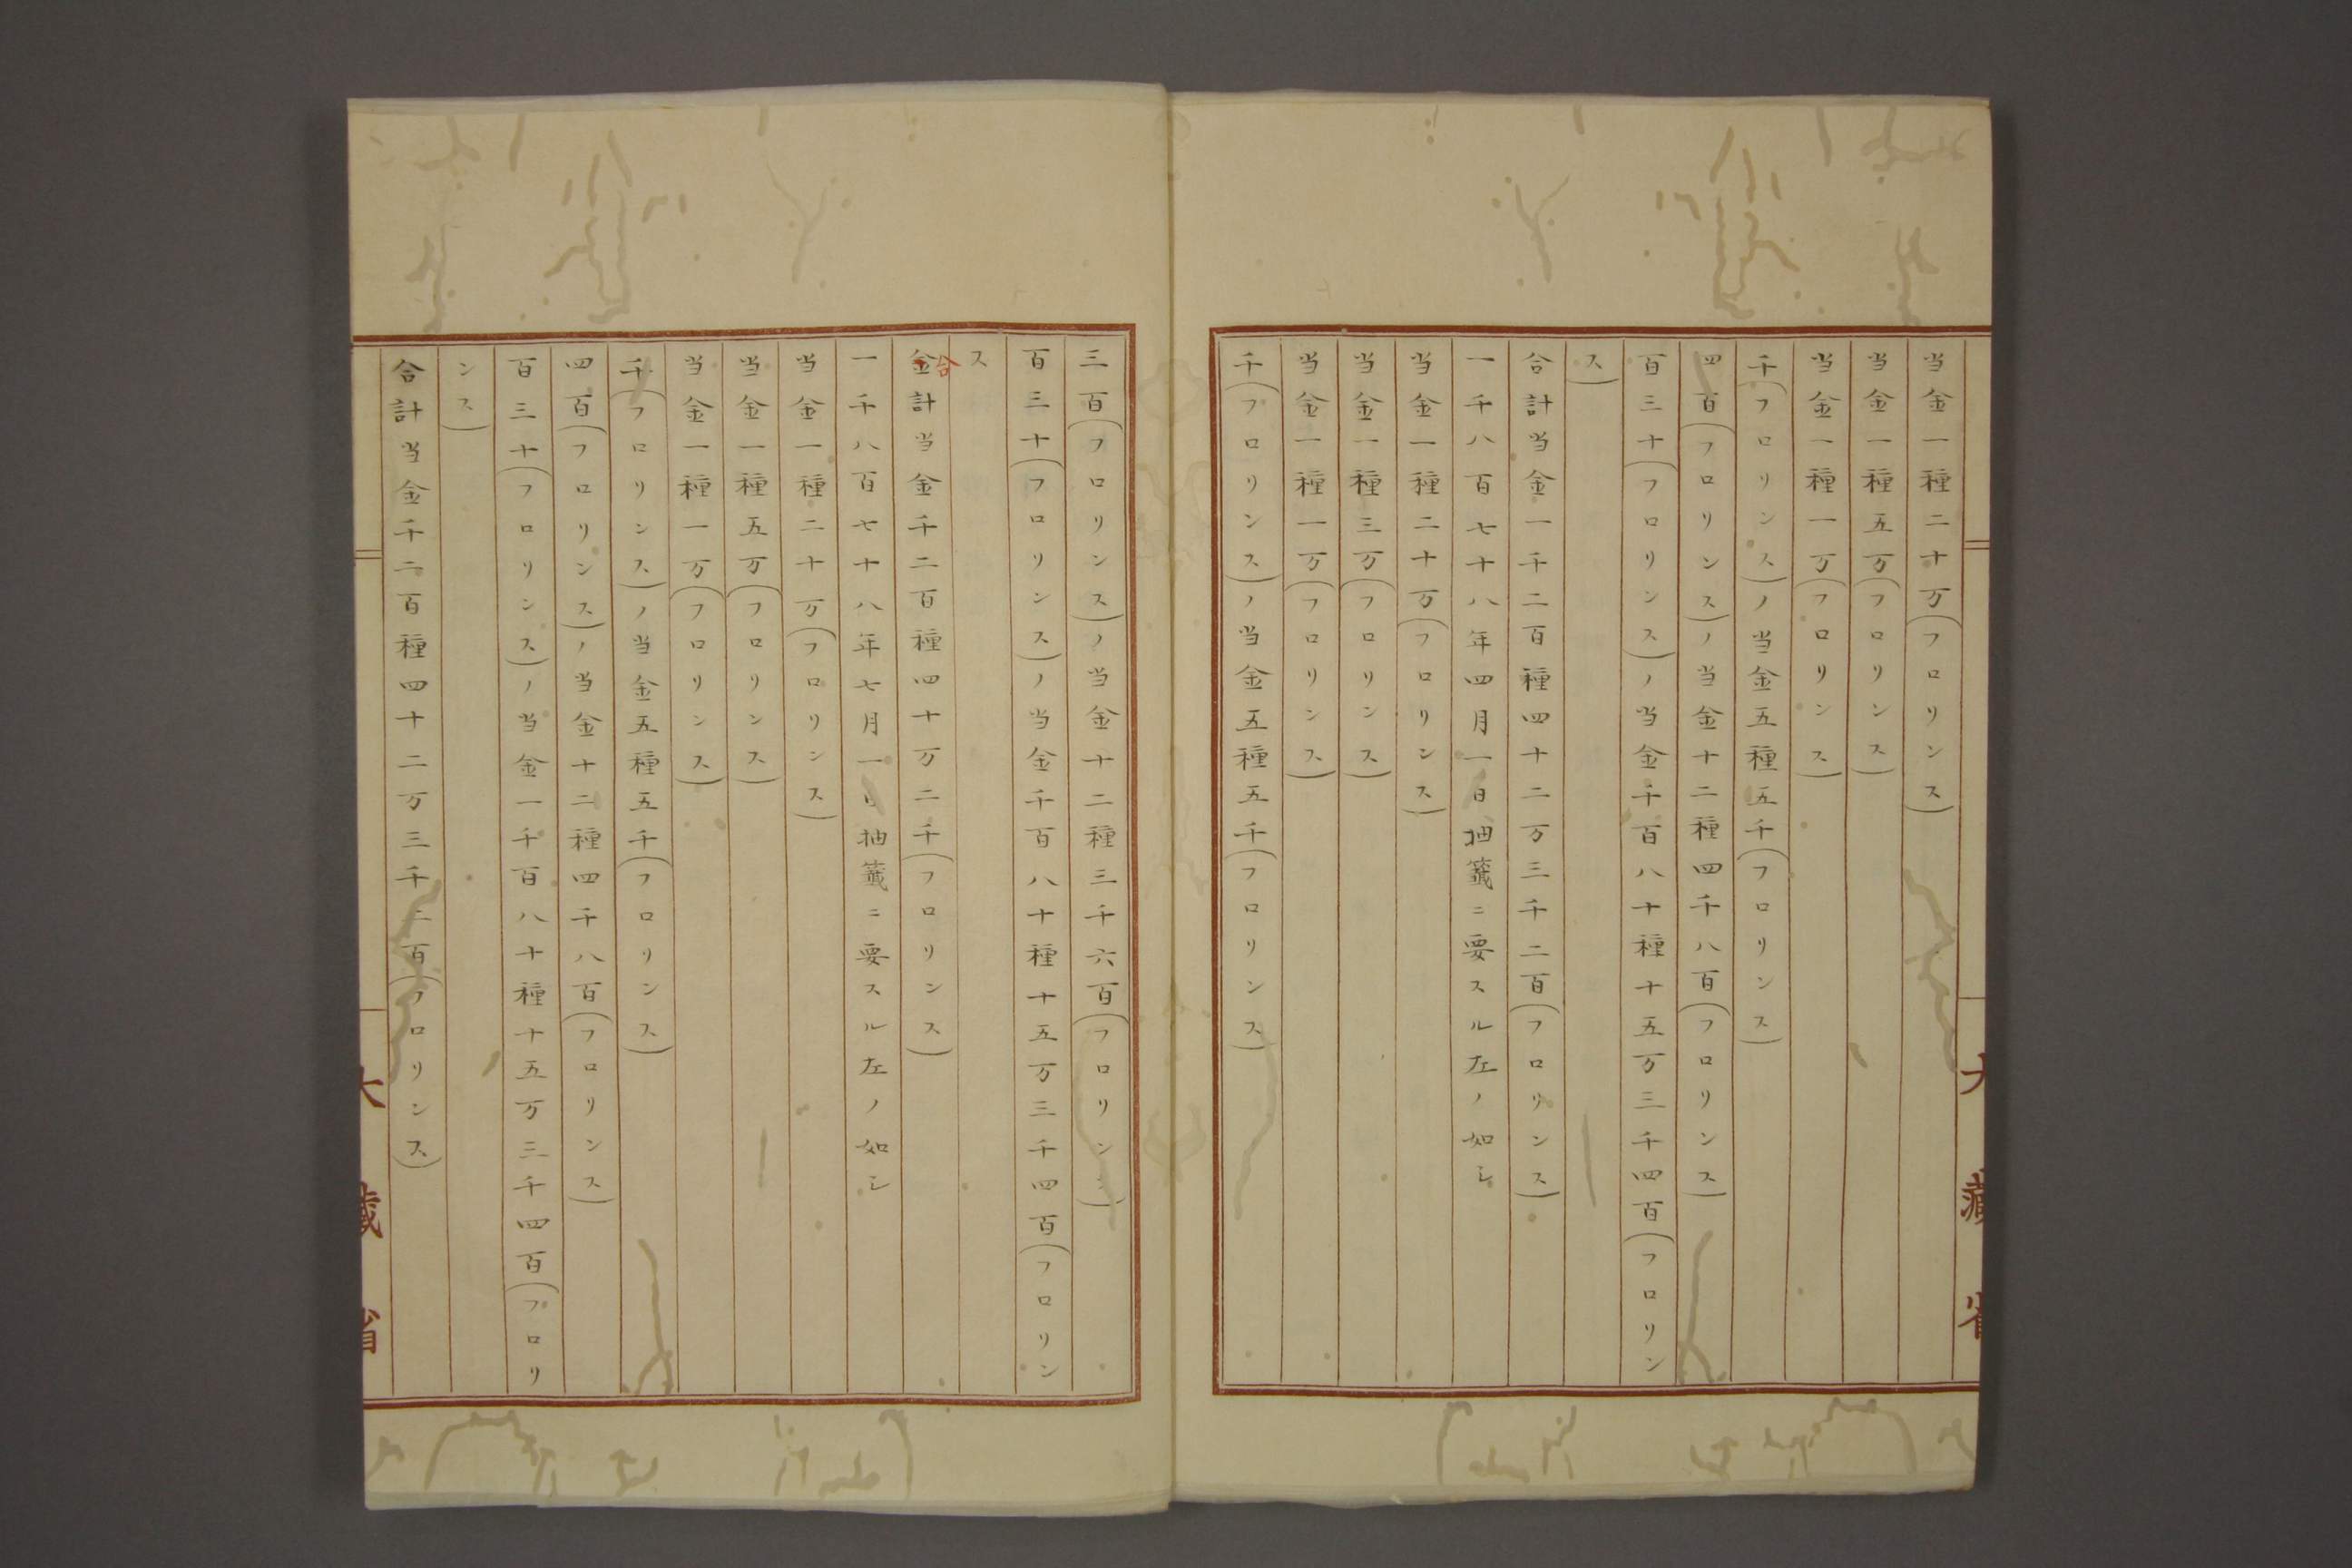 当金一種二十万(フロリンス)
当金一種五万(フロリンス)
当金一種一万(フロリンス)
千(フロリンス)ノ当金五種五千(フロリンス)
四百(フロリンス)ノ当金十二種四千八百(フロリンス)
百三十(フロリンス)ノ当金千百八十種十五万三千四百(フロリン
ス)
合計当金一千二百種四十二万三千二百(フロリンス)
一千八百七十八年四月一日抽籤ニ要スル左ノ如シ
当金一種二十万(フロリンス)
当金一種三万(フロリンス)
当金一種一万(フロリンス)
千(フロリンス)ノ当金五種五千(フロリンス)
三百(フロリンス)ノ当金十二種三千六百(フロリン)
百三十(フロリンス)ノ当金千百八十種十五万三千四百(フロリン
ス
合
金計当金千二百種四十万二千(フロリンス)
一千八百七十八年七月一日抽籤ニ要スル左ノ如シ
当金一種二十万(フロリンス)
当金一種五万(フロリンス)
当金一種一万(フロリンス)
千(フロリンス)ノ当金五種五千(フロリンス)
四百(フロリンス)ノ当金十二種四千八百(フロリンス)
百三十(フロリンス)ノ当金一千百八十種十五万三千四百(フロリ
ンス)
合計当金千二百種四十二万三千二百(フロリンス)
大藏省